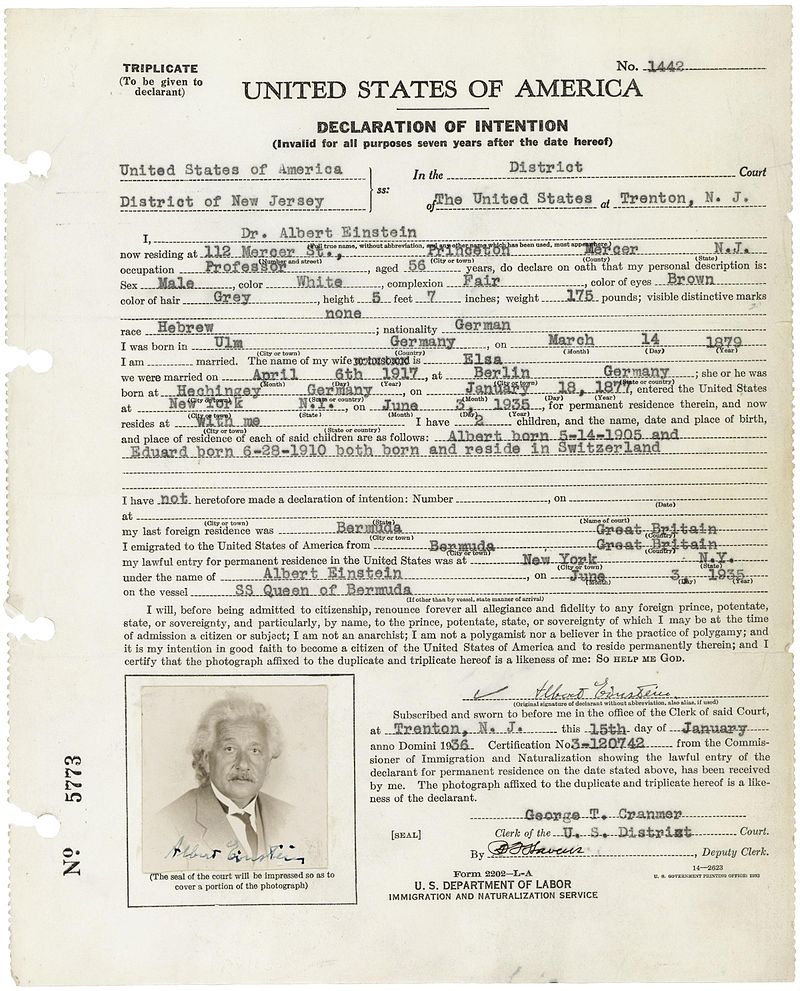 TRIPLICATE
(To be given to
declarant)
No. 1442
UNITED STATES OF AMERICA
DECLARATION OF INTENTION
(Invalid for all purposes seven years after the date hereof)
United States of America
District of New Jersey
ss:
In the District Court
of The United States at Trenton, N. J.
I, Dr. Albert Einstein
(Full true name, without abbreviation, and any other name which has been used, must appear here)
now residing at 112 Mercer St., Princeton Mercer N.J.
(Number and street) (City or town) (County) (State)
occupation Professor, aged 56 years, do declare on oath that my personal description is:
Sex Male, color White, complexion Fair, color of eyes Brown
color of hair Grey, height 5 feet 7 inches; weight 175 pounds; visible distinctive marks
none
race Hebrew; nationality German
I was born in Ulm Germany, on March 14 1879
(City or town) (Country) (Month) (Day) (Year)
I am married. The name of my wife or husband is Elsa
we were married on April 6th 1917, at Berlin Germany; she or he was
(Month) (Day) (Year) (City or town) (State or country)
born at Hechingen Germany, on January 18, 1877, entered the United States
(City or town) (State or country) (Month) (Day) (Year)
at New York N.Y., on June 3, 1935, for permanent residence therein, and now
(City or town) (State) (Month) (Day) (Year)
resides at with me I have 2 children, and the name, date and place of birth,
(City or town) (State or country)
and place of residence of each of said children are as follows: Albert born 5-14-1905 and
Eduard born 6-28-1910 both born and reside in Switzerland
I have not heretofore made a declaration of intention: Number, on
(Date)
at
(City or town) (State) (Name of court)
my last foreign residence was Bermuda Great Britain
(City or town) (Country)
I emigrated to the United States of America from Bermuda Great Britain
(City or town) (Country)
my lawful entry for permanent residence in the United States was at New York N.Y.
(City or town) (State)
under the name of Albert Einstein, on June 3 1935
(Month) (Day) (Year)
on the vessel SS Queen of Bermuda
(If other than by vessel, state manner of arrival)
I will, before being admitted to citizenship, renounce forever all allegiance and fidelity to any foreign prince, potentate,
state, or sovereignty, and particularly, by name, to the prince, potentate, state, or sovereignty of which I may be at the time
of admission a citizen or subject; I am not an anarchist; I am not a polygamist nor a believer in the practice of polygamy; and
it is my intention in good faith to become a citizen of the United States of America and to reside permanently therein; and I
certify that the photograph affixed to the duplicate and triplicate hereof is a likeness of me: SO HELP ME GOD.
Albert Einstein
(Original signature of declarant without abbreviation, also alias, if used)
Subscribed and sworn to before me in the office of the Clerk of said Court,
at Trenton, N. J. this 15th day of January
anno Domini 1936 Certification No 3-120742 from the Commis-
sioner of Immigration and Naturalization showing the lawful entry of the
declarant for permanent residence on the date stated above, has been received
by me. The photograph affixed to the duplicate and triplicate hereof is a like-
ness of the declarant.
George T. Cranmer
[SEAL] Clerk of the U. S. District Court.
By, Deputy Clerk.
Form 2202—L-A
U. S. DEPARTMENT OF LABOR
IMMIGRATION AND NATURALIZATION SERVICE
14—2623
U. S. GOVERNMENT PRINTING OFFICE:
Albert Einstein
(The seal of the court will be impressed so as to
cover a portion of the photograph)
No 5773